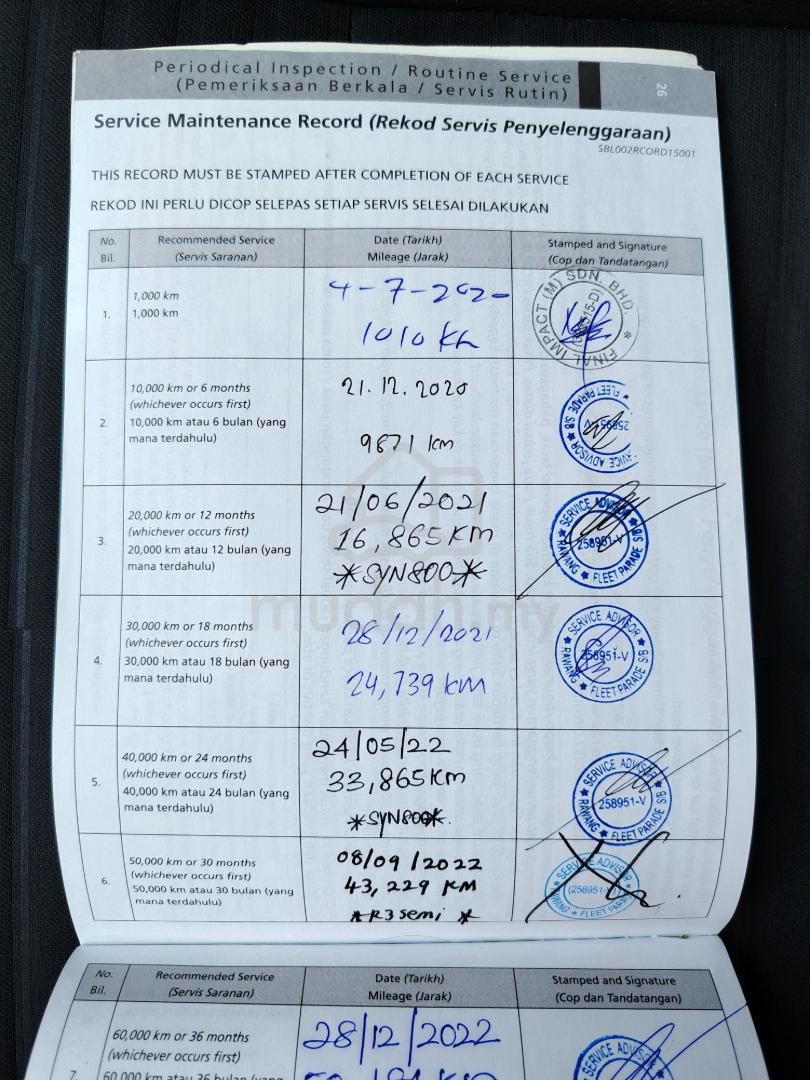 Periodical Inspection / Routine Service
(Pemeriksaan Berkala / Servis Rutin)
26
Service Maintenance Record (Rekod Servis Penyelenggaraan)
SBL002RCORD15001
THIS RECORD MUST BE STAMPED AFTER COMPLETION OF EACH SERVICE
REKOD INI PERLU DICOP SELEPAS SETIAP SERVIS SELESAI DILAKUKAN
No.
Bil.
Recommended Service
(Servis Saranan)
Date (Tarikh)
Mileage (Jarak)
Stamped and Signature
(Cop dan Tandatangan)
1.
1,000 km
1,000 km
4-7-2020
1010 km
FINAL IMPACT (M) SDN. BHD.
2.
10,000 km or 6 months
(whichever occurs first)
10,000 km atau 6 bulan (yang
mana terdahulu)
21.12.2020
9871 km
FLEET PARADE S/B
3.
20,000 km or 12 months
(whichever occurs first)
20,000 km atau 12 bulan (yang
mana terdahulu)
21/06/2021
16,865KM
*SYN800*
SERVICE ADVISOR
258951-V
RAWANG
FLEET PARADE S/B
4.
30,000 km or 18 months
(whichever occurs first)
30,000 km atau 18 bulan (yang
mana terdahulu)
28/12/2021
24,739 KM
SERVICE ADVISOR
258951-V
RAWANG
FLEET PARADE S/B
5.
40,000 km or 24 months
(whichever occurs first)
40,000 km atau 24 bulan (yang
mana terdahulu)
24/05/22
33,865KM
*SYN800*.
SERVICE ADVISOR
258951-V
RAWANG
FLEET PARADE S/B
6.
50,000 km or 30 months
(whichever occurs first)
50,000 km atau 30 bulan (yang
mana terdahulu)
08/09/2022
43,229 KM
*R3 semi*
SERVICE ADVISOR
mudah.my
No.
Bil.
Recommended Service
(Servis Saranan)
Date (Tarikh)
Mileage (Jarak)
Stamped and Signature
(Cop dan Tandatangan)
7.
60,000 km or 36 months
(whichever occurs first)
60,000 km atau 36 bulan (yang
28/12/2022
SERVICE ADVISOR